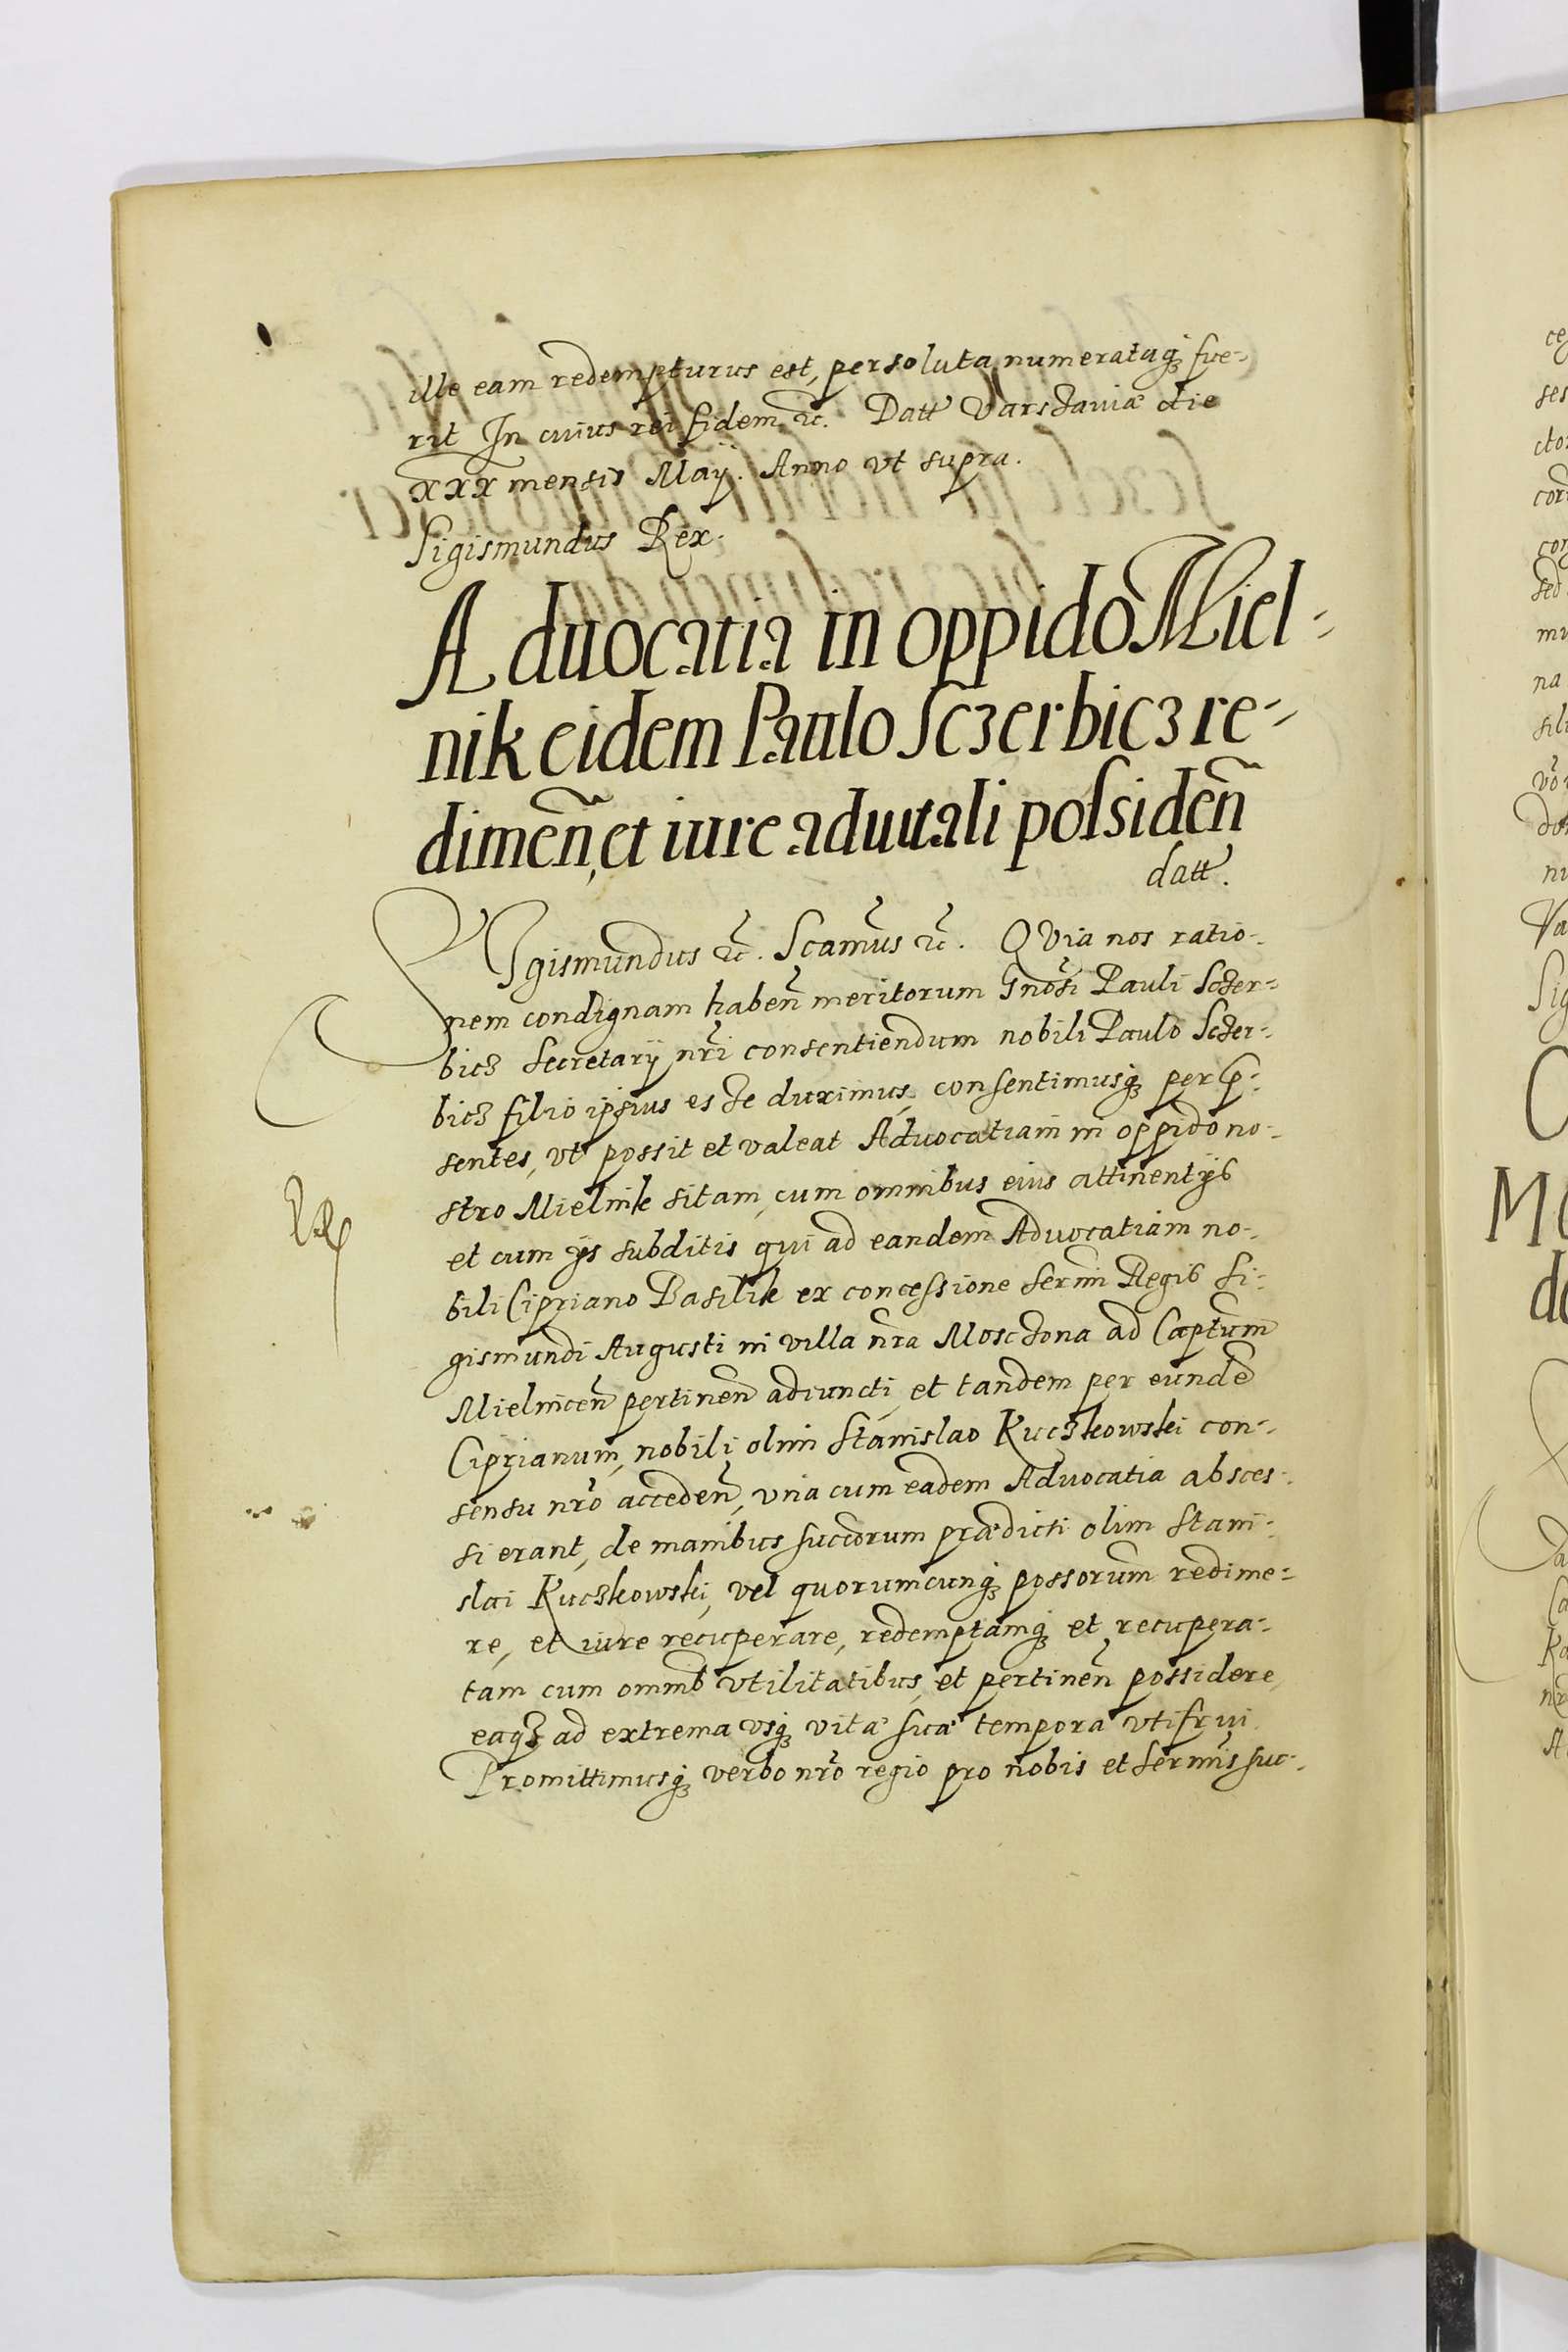 ille eam redempturus est, persoluta numerataq₃ fue-
rit In cuius rei fidem ꝛc. Datt Varszauiæ die
xxx mensis Maij. Anno vt supra.
Sigismundus Rex.
Aduocatia in oppido Miel-
nik eidem Paulo Sczerbicz re-
dimen̄, et iure aduitali possiden̄
datt.
SIgismundus ꝛc. Scamus ꝛc. QVia nos ratio-
nem condignam haben̄ meritorum Gnosi Pauli Sczer-
bicz Secretarij nr̄i consentiendum nobili Paulo Sczer-
bicz filio ipsius esse duximus, consentimusq₃ per p̄-
sentes, vt possit et valeat Aduocatiam in oppido no-
stro Mielnik sitam, cum omnibus eius attinentijs
et cum ijs subditis qui ad eandem Aduocatiam no-
bili Cipriano Basilik ex concessione Sermi Regis Si-
gismundi Augusti in villa nr̄a Moszczona ad Captum
Mielnicen̄ pertinen̄ adiuncti, et tandem per eundē
Ciprianum, nobili olim Stanislao Kuczkowski con-
sensu nr̄o acceden̄, vna cum eadem Aduocatia absces-
si erant, de manibus succorum prædicti olim Stani-
slai Kuczkowski, vel quorumcunq₃ possorum redime-
re, et iure recuperare, redemptamq₃ et recupera-
tam cum omnib vtilitatibus, et pertinen̄ possidere
eaq₃ ad extrema vsq₃ vitæ suæ tempora vtifrui.
Promittimusq₃ verbo nr̄o regio pro nobis et Sermis suc-